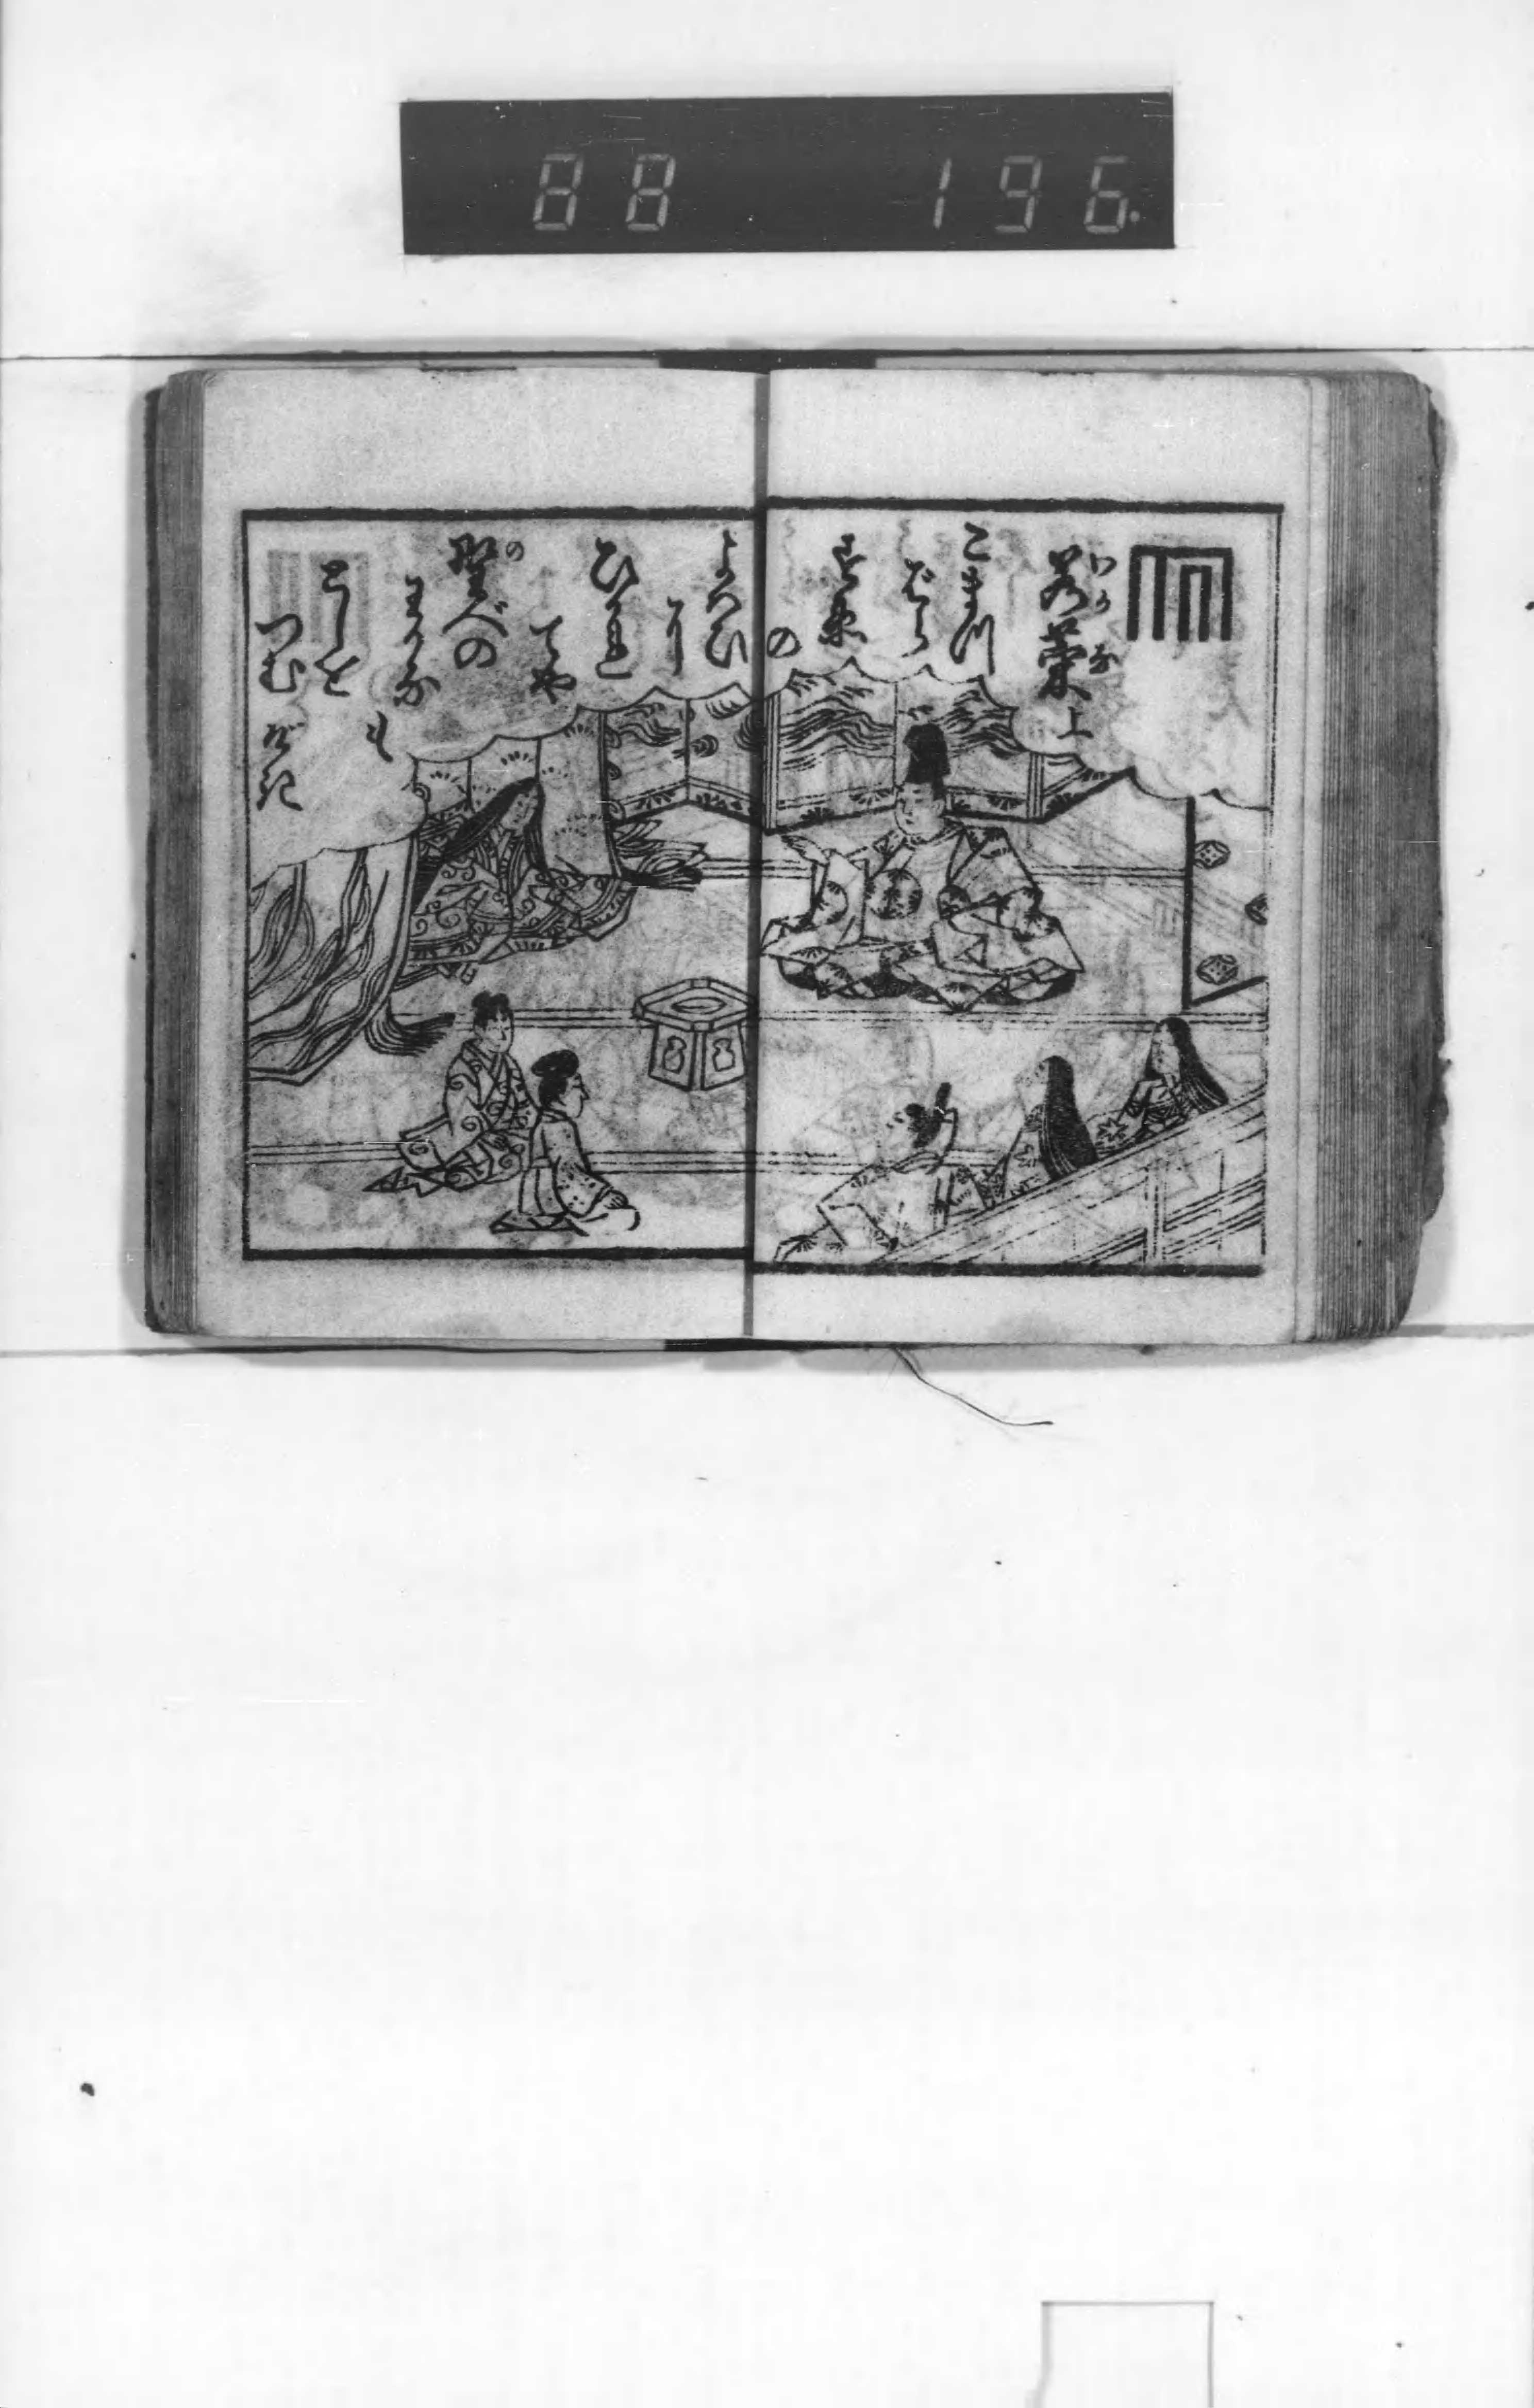 88 196.
若菜上
わかな
こまつ
ばら
末
の
よはひ
に
ひかれ
てや
野べの
の
わかな
も
としを
つむ
べき